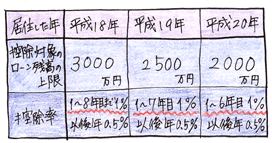 居住した年 平成18年 平成19年 平成20年
控除対象の
ローン残高の
上限
3000 2500 2000
万円 万円 万円
控除率
1~8年目まで1% 1~7年目1% 1~6年目1%
以後年0.5% 以後年0.5% 以後年0.5%